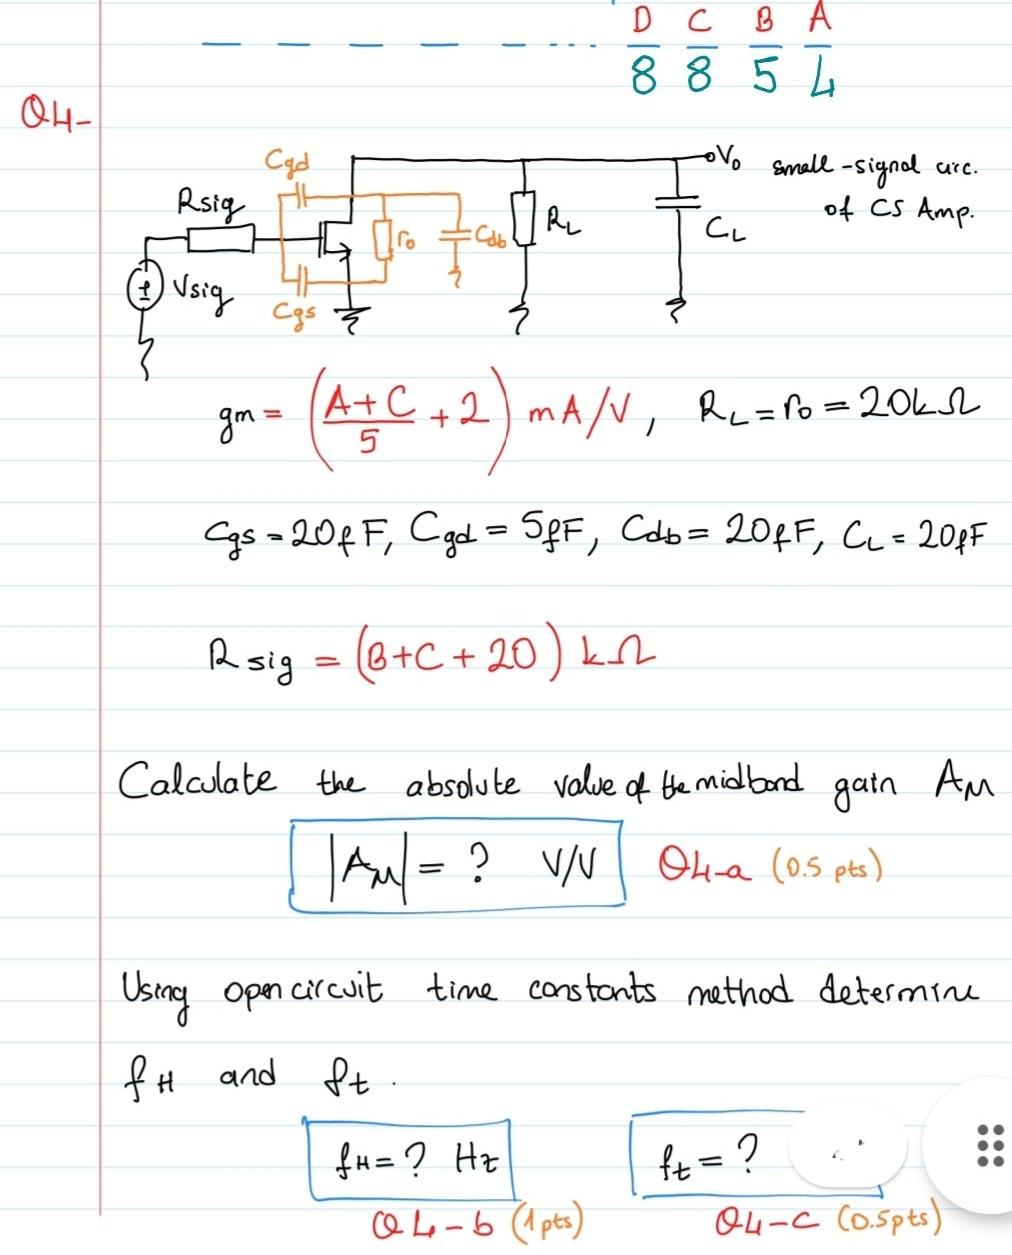 D C B A
8 8 5 4
Q4-
Cgd
Vo small-signal circ.
Rsig
RL
of CS Amp.
ro
Cdb
CL
Vsig
Cgs
gm = (A+C/5 + 2) mA/V, RL = ro = 20kΩ
Cgs = 20fF, Cgd = 5fF, Cdb = 20fF, CL = 20fF
Rsig = (B+C+20) kΩ
Calculate the absolute value of the midband gain AM
|AM| = ? V/V Q4-a (0.5 pts)
Using open circuit time constants method determine
fH and ft.
fH = ? Hz ft = ?
Q4-b (1pts) Q4-c (0.5pts)